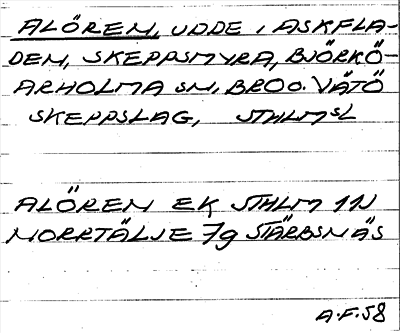 ALÖREN, UDDE I ASKFLA-
DEN, SKEPPSMYRA, BJÖRKÖ-
ARHOLMA SN, BRO O. VÄTÖ
SKEPPSLAG, STHLMSL
ALÖREN EK STHLM 11N
NORRTÄLJE 7g STÄRBSNÄS
A.F. 58